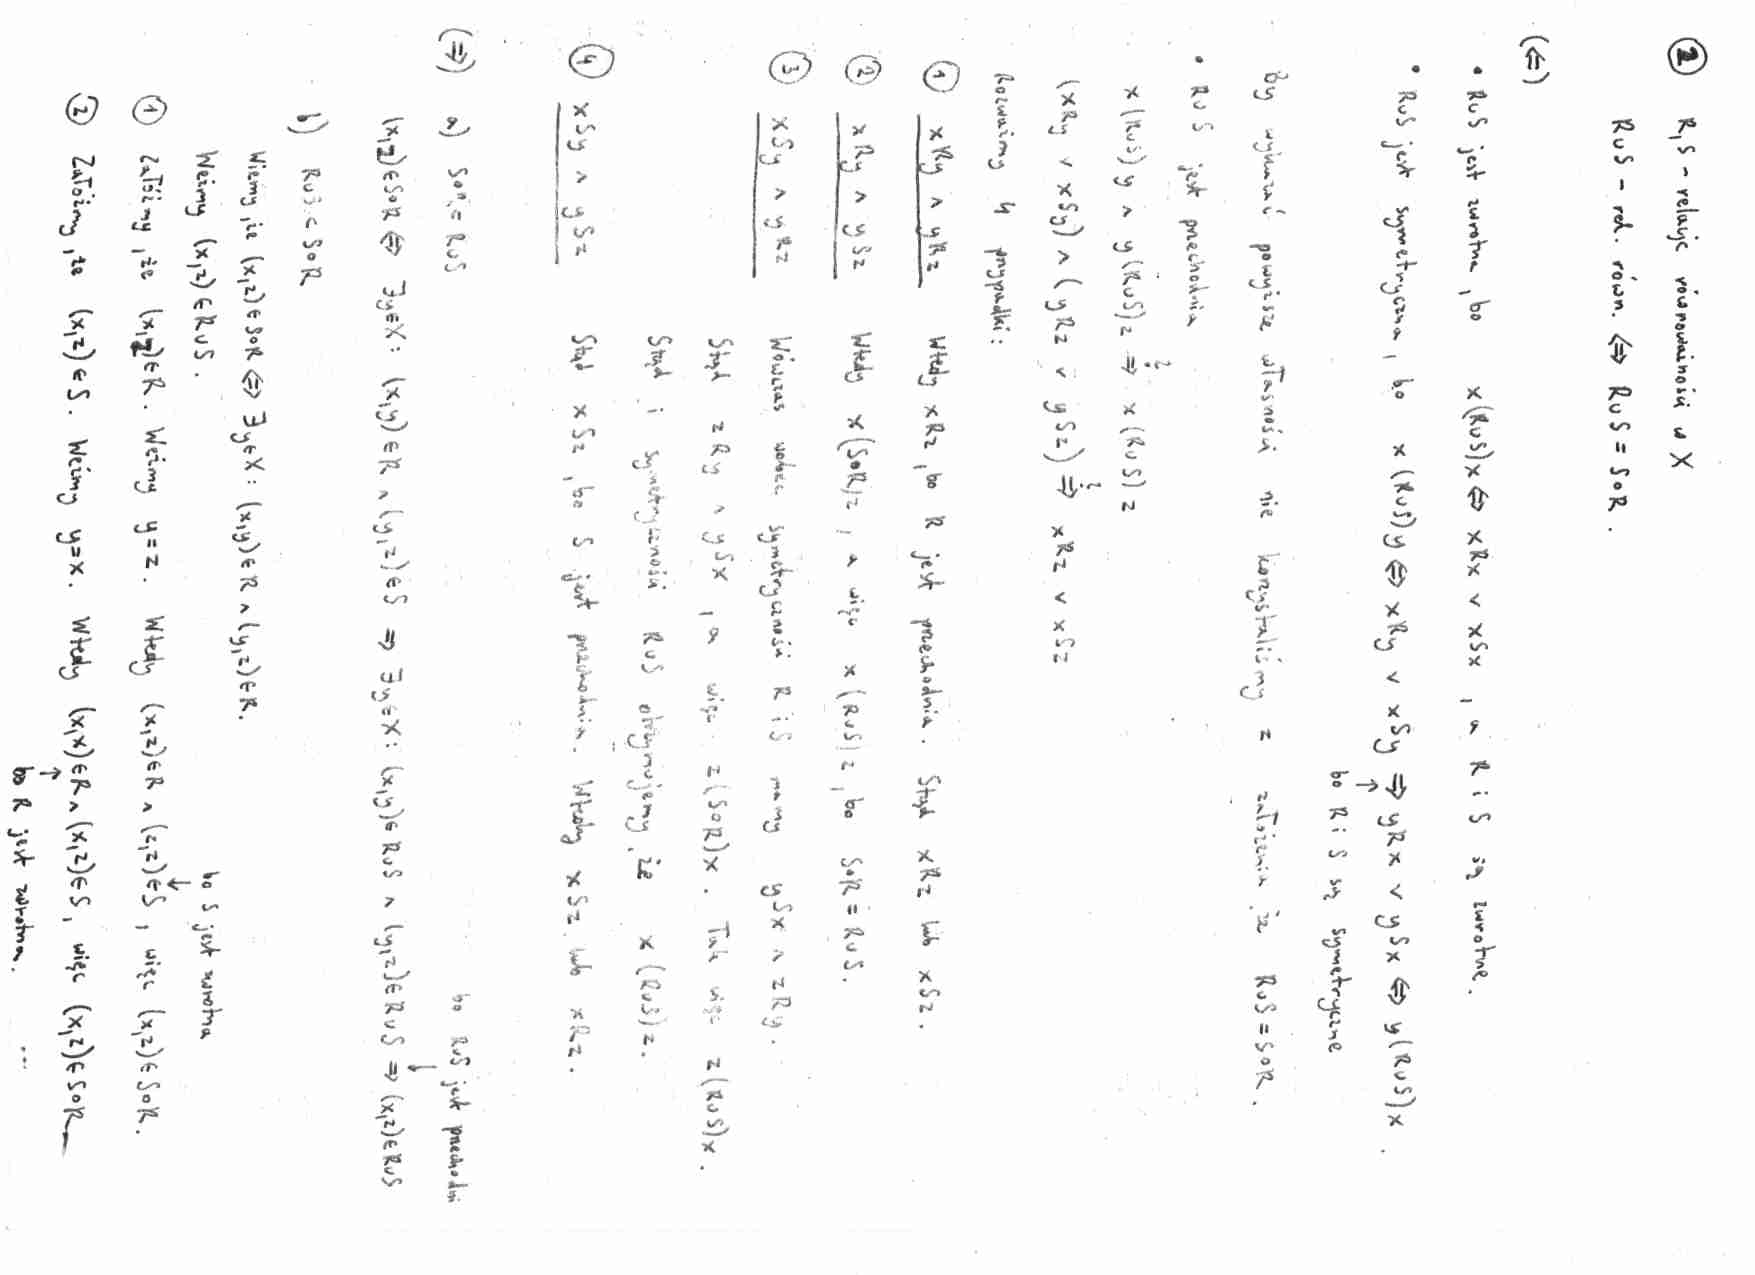 ② R,S - relacje równoważności w X
R∪S - rel. równ. ⇔ R∪S = S∘R.
(⇐)
• R∪S jest zwrotna, bo x(R∪S)x ⇔ xRx ∨ xSx, a R i S są zwrotne.
• R∪S jest symetryczna, bo x(R∪S)y ⇔ xRy ∨ xSy ⇒ yRx ∨ ySx ⇔ y(R∪S)x.
↑ bo R i S są symetryczne
By wykazać powyższe własności nie korzystaliśmy z założenia że R∪S = S∘R.
• R∪S jest przechodnia
x(R∪S)y ∧ y(R∪S)z ⇒? x(R∪S)z
(xRy ∨ xSy) ∧ (yRz ∨ ySz) ⇒? xRz ∨ xSz
Rozważmy 4 przypadki:
① xRy ∧ yRz Wtedy xRz, bo R jest przechodnia. Stąd xRz lub xSz.
② xRy ∧ ySz Wtedy x(S∘R)z, a więc x(R∪S)z, bo S∘R = R∪S.
③ xSy ∧ yRz Wówczas wobec symetryczności R i S mamy ySx ∧ zRy.
Stąd zRy ∧ ySx, a więc z(S∘R)x. Tak więc z(R∪S)x.
Stąd i symetryczności R∪S otrzymujemy, że x(R∪S)z.
④ xSy ∧ ySz Stąd xSz, bo S jest przechodnia. Wtedy xSz lub xRz.
(⇒) a) S∘R ⊂ R∪S bo R∪S jest przechodni
↓
(x,z)∈S∘R ⇔ ∃y∈X: (x,y)∈R ∧ (y,z)∈S ⇒ ∃y∈X: (x,y)∈R∪S ∧ (y,z)∈R∪S ⇒ (x,z)∈R∪S
b) R∪S ⊂ S∘R
Wiemy, że (x,z)∈S∘R ⇔ ∃y∈X: (x,y)∈R ∧ (y,z)∈R.
Weźmy (x,z)∈R∪S. bo S jest zwrotna
↓
① Załóżmy, że (x,z)∈R. Weźmy y=z. Wtedy (x,z)∈R ∧ (z,z)∈S, więc (x,z)∈S∘R.
② Załóżmy, że (x,z)∈S. Weźmy y=x. Wtedy (x,x)∈R ∧ (x,z)∈S, więc (x,z)∈S∘R
↑
bo R jest zwrotna. ...